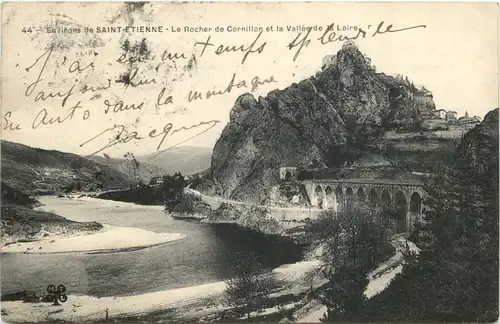 44 - Environs de SAINT-ETIENNE - Le Rocher de Cornillon et la Vallée de la Loire
J'ai un temps splendide
auj en excursion
en Auto dans la montagne
Jacques